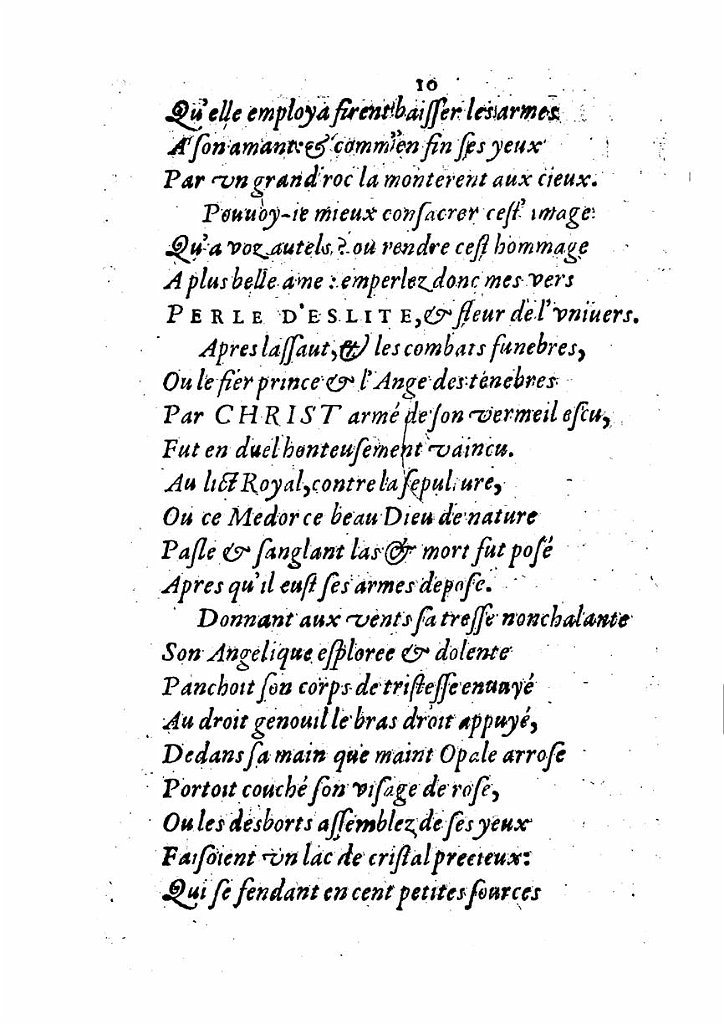 10
Qu'elle employa firent baisser les armes
A' son amant: & comm'en fin ses yeux
Par vn grand roc la monterent aux cieux.
Pouuoy-ie mieux consacrer cest' image
Qu'a voz autels? ou rendre cest hommage
A plus belle ame: emperlez donc mes vers
PERLE D'ESLITE, & fleur de l'vniuers.
Apres l'assaut, & les combats funebres,
Ou le fier prince & l'Ange des ténebres
Par CHRIST armé de son vermeil escu,
Fut en duel honteusement vaincu.
Au lict Royal, contre la sepulture,
Ou ce Medor ce beau Dieu de nature
Pasle & sanglant las & mort fut posé
Apres qu'il eust ses armes deposé.
Donnant aux vents sa tresse nonchalante
Son Angelique esploree & dolente
Panchoit son corps de tristesse ennuyé
Au droit genouil le bras droit appuyé,
Dedans sa main que maint Opale arrose
Portoit couché son visage de rose,
Ou les desborts assemblez de ses yeux
Faisoient vn lac de cristal precieux:
Qui se fendant en cent petites sources